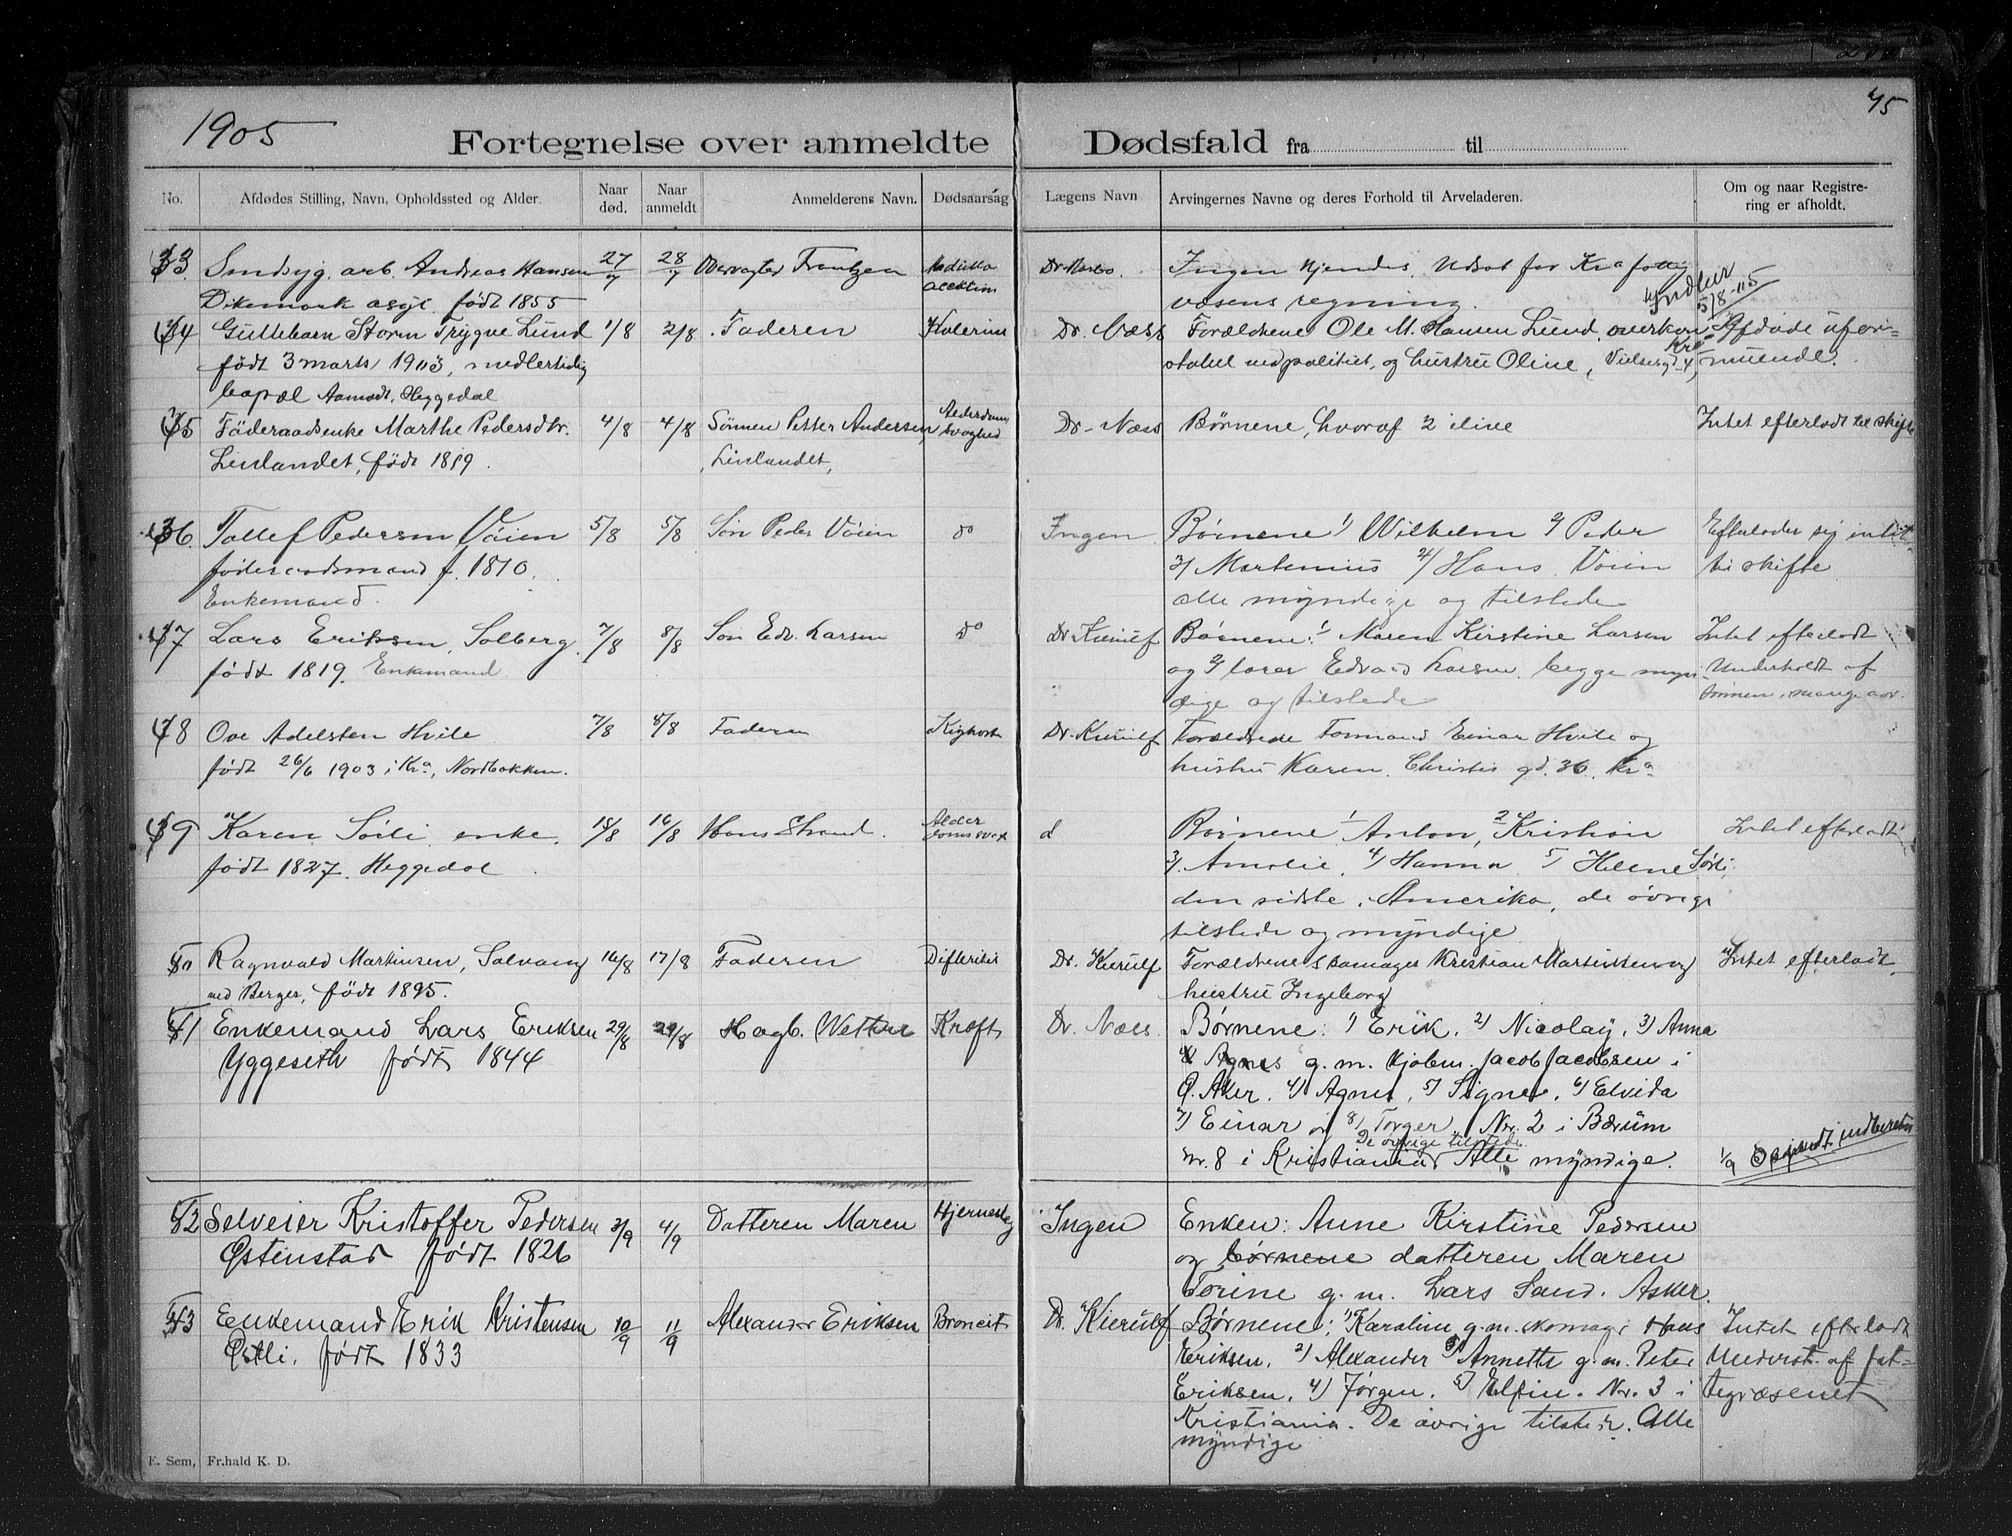 1905
75
Fortegnelse over anmeldte Dødsfald fra til
No. Afdødes Stilling, Navn, Opholdssted og Alder. Naar død. Naar anmeldt Anmelderens Navn. Dødsaarsag Lægens Navn Arvingernes Navne og deres Forhold til Arveladeren. Om og naar Registrering er afholdt.
33 Sindsyg. arb. Andreas Hansen 27/7 28/7 Overvagter Frantzen Ingen kjendes. Udsat for Kra fattig
Dikemark asyl. født 1855 væsens regning.
34 Guttebarn Storm Trygve Lund 1/8 2/8 Faderen Kolerine Dr. Næss Forældrene Ole M. Hansen Lund, overkon Afdøde ufor-
født 3 marts 1903, midlertidig stabel ved politiet, og hustru Oline, muende.
Heggedal
35 Føderaadsenke Marthe Pedersdtr. 4/8 4/8 Sønnen Petter Andersen Alderdoms Dr. Næss Børnene, hvoraf 2 ilive Intet efterladt til skifte
Leirlandet, født 1819. Leirlandet, svaghed
36. Tollef Pedersen Vøien 5/8 5/8 Søn Peder Vøien do Ingen Børnene 1/ Wilhelm 2/ Peder Efterlader sig intet
føderaadsmand f. 1810. 3/ Martenius 4/ Hans Vøien til skifte
Enkemand. alle myndige og tilstede
37 Lars Eriksen, Solberg 7/8 8/8 Søn Edv. Larsen do Dr. Kierulf Børnene: 1/ Maren Kirstine Larsen Intet efterladt
født 1819. Enkemand og 2/ Edvard Larsen begge myn Underholdt af
dige og tilstede sønnen, mange aar.
38 Ove Adelsten Hvile 7/8 8/8 Faderen Kighoste Dr. Kierulf Forældrene Formand Einar Hvile og
født 26/6 1903 i Kra, Nordbakken. hustru Karen. Christies gd. 36. Kra
39 Karen Sørli enke. 15/8 16/8 Hans Strand. Alder d Børnene 1/ Anton, 2/ Kristian Intet efterladt
født 1827. Heggedal 3/ Amalie, 4/ Hanna 5/ Helene Sørli,
den sidste i Amerika, de øvrige
tilstede og myndige
40 Ragnvald Martinsen, Solvang 16/8 17/8 Faderen Difteritis Dr. Kierulf Forældrene skomager Kristian Martinsen og Intet efterladt
ved Berger, født 1895. hustru Ingeborg
41 Enkemand Lars Eriksen 29/8 29/8 Hagb. Wettre Kræft Dr. Næss. Børnene: 1) Erik, 2) Nicolay, 3) Anna
Yggeseth født 1844 Agnes g. m. kjøbm. Jacob Jacobsen i
Ø. Aker. 4) Agnes, 5) Signe, 6) Elvida
7) Einar og 8) Torger. Nr. 2 i Bærum
De øvrige tilstede
nr. 8 i Kristiania Alle myndige. 1/9
42 Selveier Kristoffer Pedersen 3/9 4/9 Datteren Maren Hjerneslag Ingen Enken: Anne Kirstine Pedersen
Østenstad født 1826 og børnene datteren Maren
Torine g. m. Lars Sand. Asker.
43 Enkemand Erik Kristensen 10/9 11/9 Alexander Eriksen Broncit Dr. Kierulf Børnene: 1/ Karoline g. m. skomag. Hans Intet efterladt
Østli. født 1833 Eriksen, 2) Alexander 3) Annette g. m. Peter Underst. af fat-
Eriksen, 4) Jørgen, 5) Elfin. Nr. 3 i tigvæsenet
Kristiania. De øvrige tilstede. Alle
myndige
E. Sem, Fr.hald K. D.